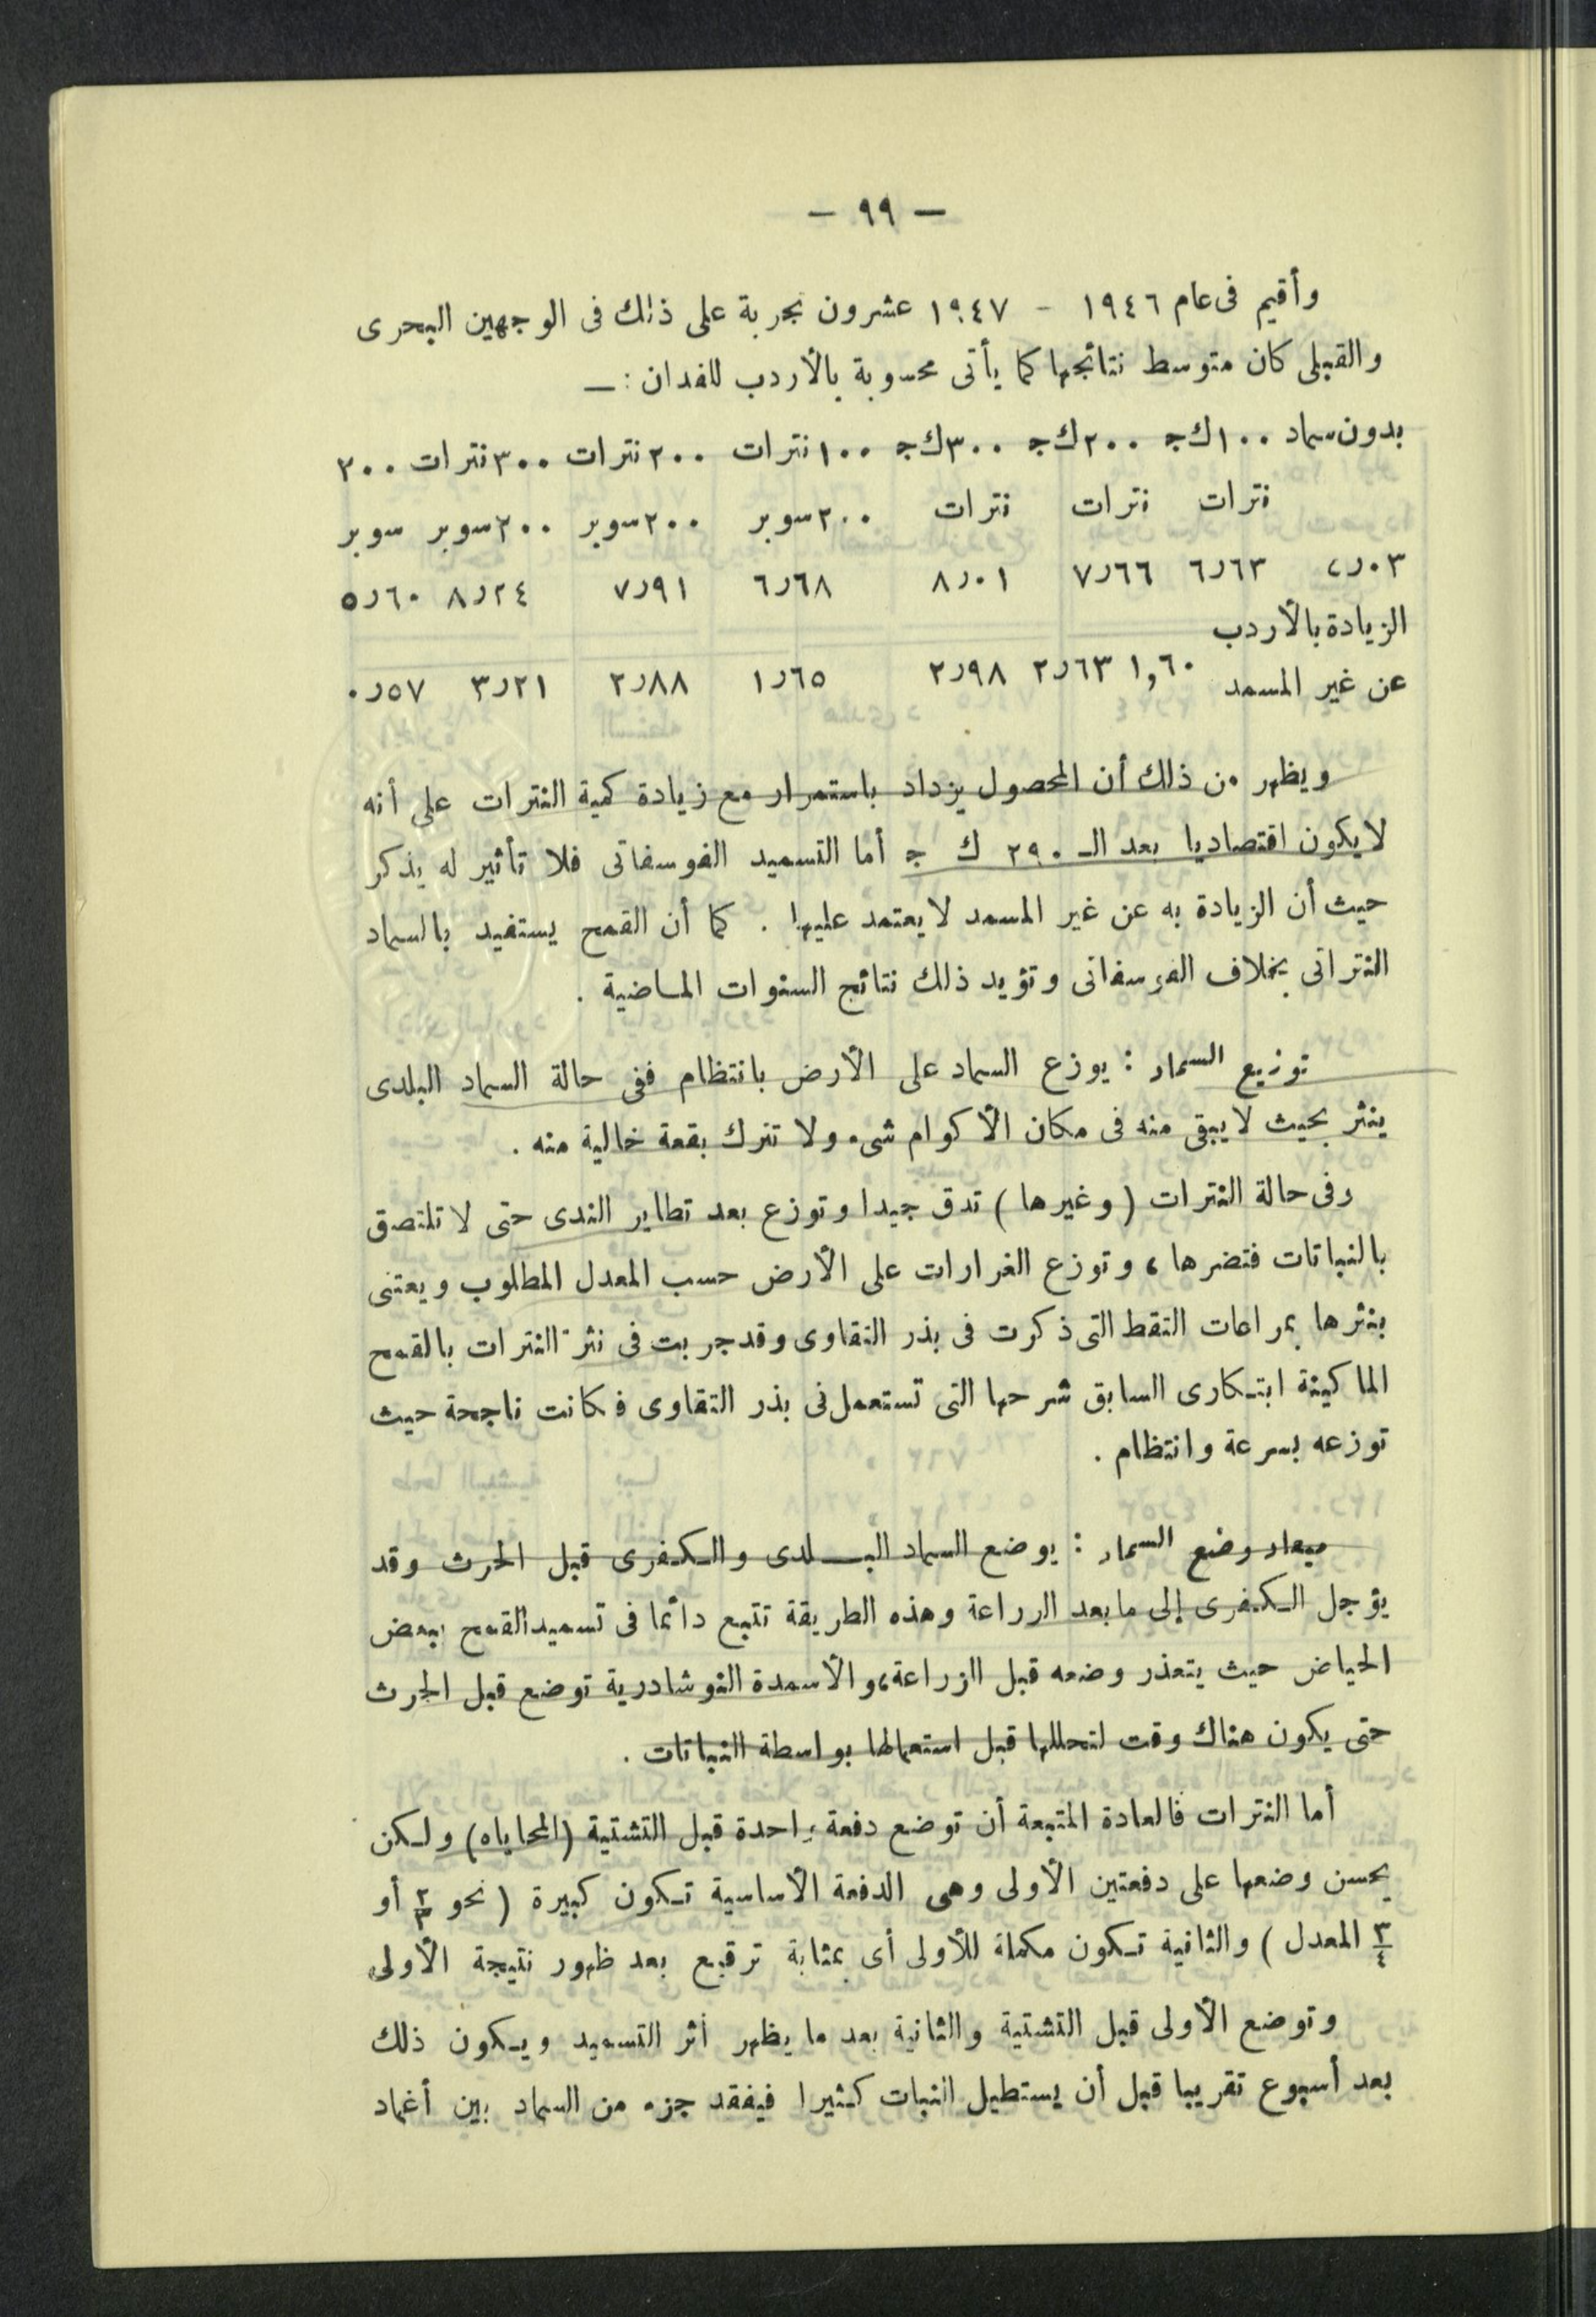 — ٩٩ —
وأقيم فى عام ١٩٤٦ - ١٩٤٧ عشرون تجربة على ذلك فى الوجهين البحرى
والقبلى كان متوسط نتائجها كما يأتى محسوبة بالأردب للفدان : —
بدون سماد ١٠٠ك ج ٢٠٠ك ج ٣٠٠ك ج ١٠٠نترات ٢٠٠نترات ٣٠٠نترات ٢٠٠
نترات نترات نترات ٢٠٠سوبر ٢٠٠سوبر ٢٠٠سوبر سوبر
٦٫٦٣ ٧٫٦٦ ٨٫٠١ ٦٫٦٨ ٧٫٩١ ٨٫٢٤ ٥٫٦٠
الزيادة بالأردب
عن غير المسمد ١,٦٠ ٢٫٦٣ ٢٫٩٨ ١٫٦٥ ٢٫٨٨ ٣٫٢١ ٠٫٥٧
ويظهر من ذلك أن المحصول يزداد باستمرار مع زيادة كمية النترات على أنه
لا يكون اقتصاديا بعد الـ ٢٩٠ ك ج أما التسميد الفوسفاتى فلا تأثير له يذكر
حيث أن الزيادة به عن غير المسمد لا يعتمد عليها . كما أن القمح يستفيد بالسماد
النتراتى بخلاف الفوسفاتى وتؤيد ذلك نتائج السنوات الماضية .
توزيع السماد : يوزع السماد على الأرض بانتظام ففى حالة السماد البلدى
ينثر بحيث لا يبقى منه فى مكان الأكوام شىء ولا تترك بقعة خالية منه .
وفى حالة النترات ( وغيرها ) تدق جيدا وتوزع بعد تطاير الندى حتى لا تلتصق
بالنباتات فتضرها ، وتوزع الغرارات على الأرض حسب المعدل المطلوب ويعتنى
بنثرها بمراعات النقط التى ذكرت فى بذر التقاوى وقد جربت فى نثر النترات بالقمح
الماكينة ابتكارى السابق شرحها التى تستعمل فى بذر التقاوى فكانت ناجحة حيث
توزعه بسرعة وانتظام .
ميعاد وضع السماد : يوضع السماد البلدى والكفرى قبل الحرث وقد
يؤجل الكفرى إلى ما بعد الزراعة وهذه الطريقة تتبع دائما فى تسميد القمح ببعض
الحياض حيث يتعذر وضعه قبل الزراعة، والأسمدة النوشادرية توضع قبل الحرث
حتى يكون هناك وقت لتحللها قبل استعمالها بواسطة النباتات .
أما النترات فالعادة المتبعة أن توضع دفعة واحدة قبل التشتية (المحاياه) ولكن
يحسن وضعها على دفعتين الأولى وهى الدفعة الأساسية تكون كبيرة ( نحو ٢/٣ أو
٣/٤ المعدل ) والثانية تكون مكملة للأولى أى بمثابة ترقيع بعد ظهور نتيجة الأولى
وتوضع الأولى قبل التشتية والثانية بعد ما يظهر أثر التسميد ويكون ذلك
بعد أسبوع تقريبا قبل أن يستطيل النبات كثيرا فيفقد جزء من السماد بين أغماد